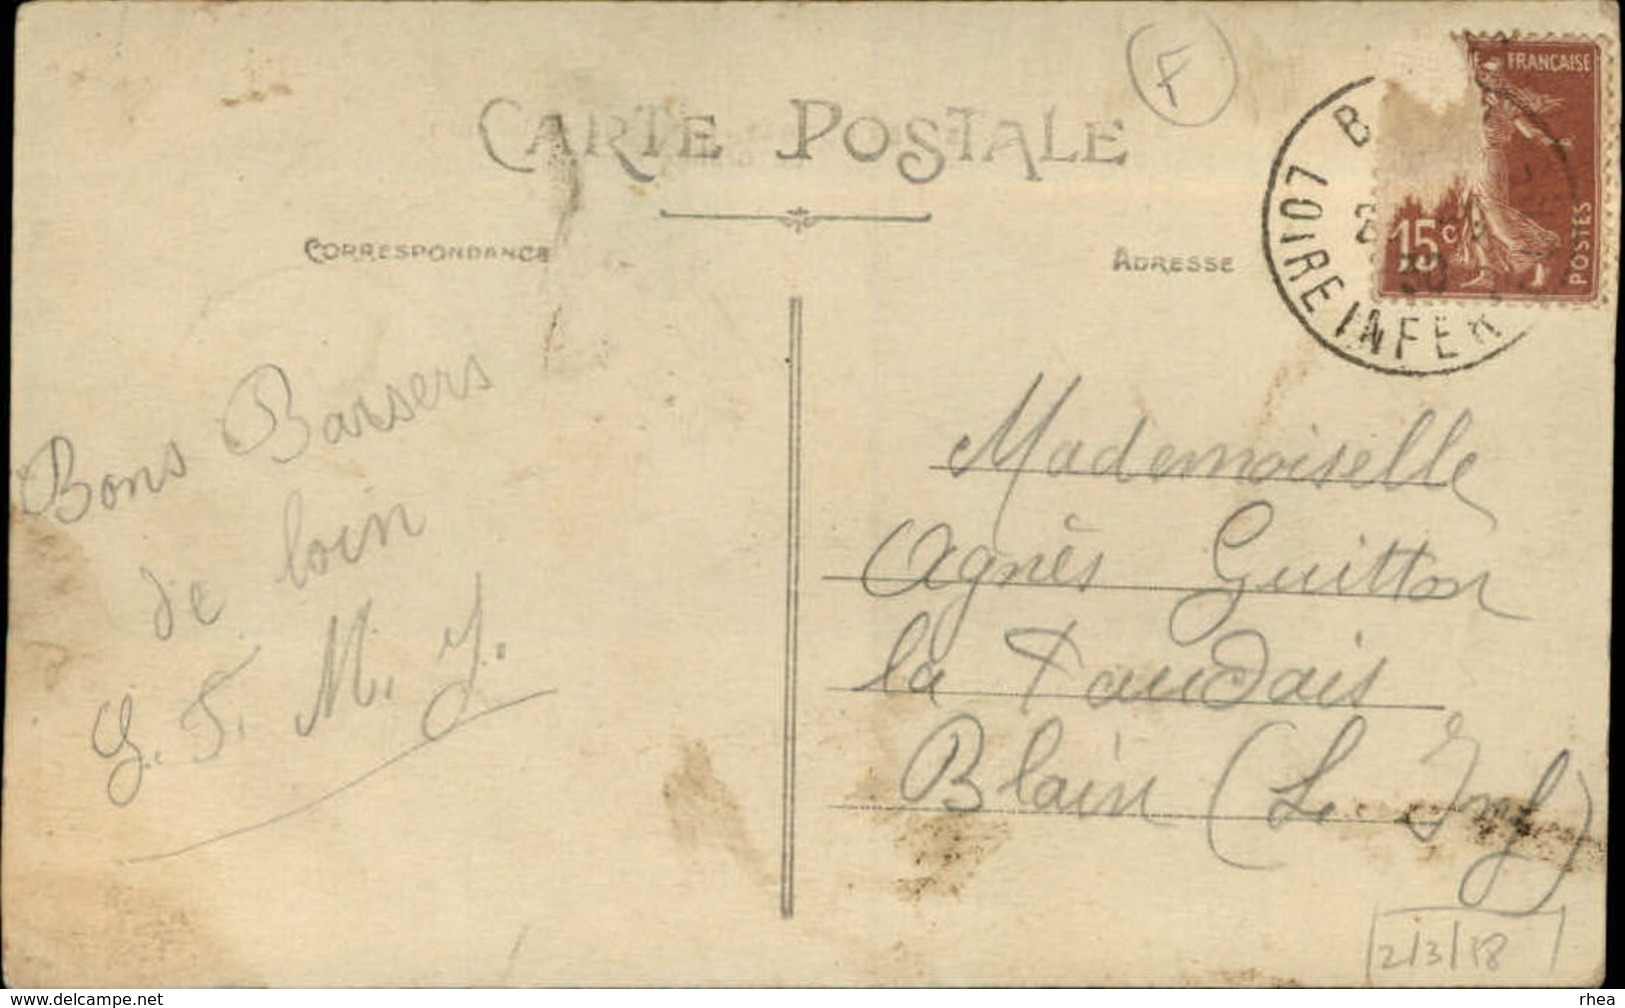 F
CARTE POSTALE
CORRESPONDANCE
ADRESSE
E FRANÇAISE
15c
POSTES
B
LOIRE INFER
Bons Barsers
de loin
G. T. M. J.
Mademoiselle
Agnès Guitton
la Taudais
Blain (L. Inf)
2/3/18
http://www.delcampe.net
rhea